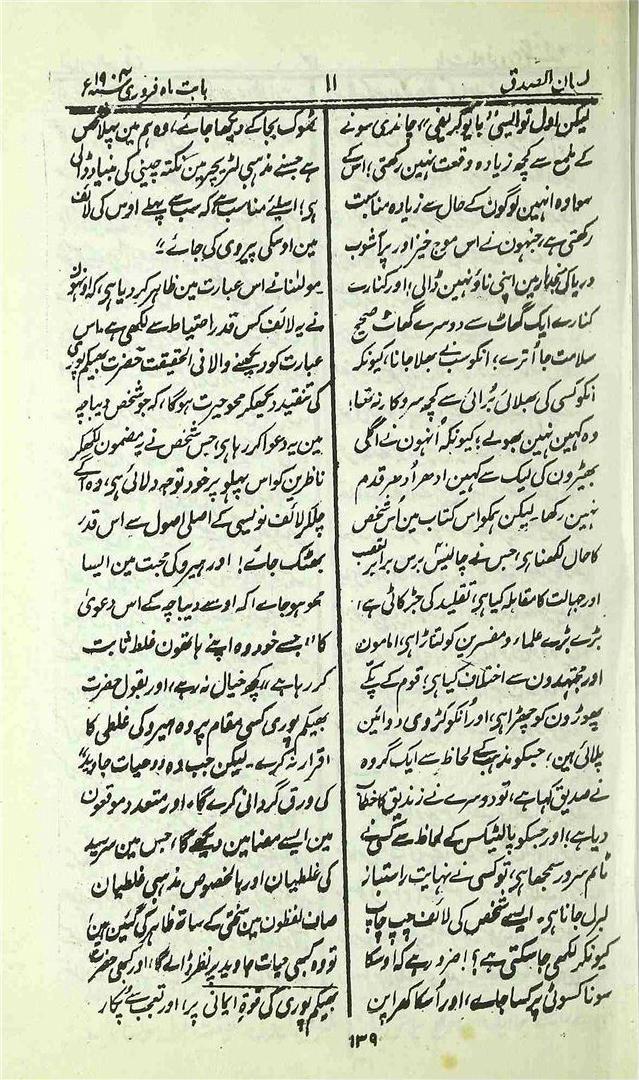 لسان الصدق
۱۱
بابت ماہ فروری سنہ ۱۹۰۴ء
لیکن اول تو ایسی "بایوگریفی" چاندی سونے
کے ملمع سے کچھ زیادہ وقعت نہین رکھتی؛ اسکے
سوا وہ انہین لوگون کے حال سے زیادہ مناسبت
رکھتی ہے، جنہون نے اس موج خیز اور پر آشوب
دریا کی منجدہار مین اپنی ناؤ نہین ڈالی؛ اور کنارے
کنارے ایک گھاٹ سے دوسرے گھاٹ صحیح
سلامت جا اُترے؛ انکو سب نے بھلا جانا، کیونکہ
انکو کسی کی بھلائی بُرائی سے کچھ سروکار نہ تھا؛
وہ کہین نہین بھولے؛ کیونکہ اُنہون نے اگلی
بھیڑون کی لیک سے کہین ادھر اُدھر قدم
نہین رکھا، لیکن ہمکو اس کتاب مین اُس شخص
کا حال لکھنا ہی، جس نے چالیس برس برابر تعصب
اور جہالت کا مقابلہ کیا ہی، تقلید کی جڑ کاٹی ہے،
بڑے بڑے علماء و مفسرین کو لتاڑا ہی، امامون
اور مجتہدون سے اختلاف کیا ہی؛ قوم کے پکے
پھوڑون کو چھیڑا ہی، اور اُنکو کڑوی دوائین
پلائی ہین؛ جسکو مذہب کے لحاظ سے ایک گروہ
نے صدیق کہا ہے، تو دوسرے نے زندیق کا خطاب
دیا ہے؛ اور جسکو پالٹیکس کے لحاظ سے کسی نے
ٹائم سرور سمجھا ہی، تو کسی نے نہایت راستباز
لبرل جانا ہی۔ ایسے شخص کی لائف چپ چاپ
کیونکر لکھی جا سکتی ہے؟! ضرور ہے کہ اوسکا
سونا کسوٹی پر کسا جاے، اور اُسکا کھراپن
ٹھوک بجا کے دیکھا جائے، وہ ہم مین پہلا شخص
ہے جسنے مذہبی لٹریچر مین نکتہ چینی کی بنیاد ڈالی
ہی؛ اسلیئے مناسب ہے کہ سب سے پہلے اوس کی لائف
مین اوسکی پیروی کی جائے"
مولٰنا نے اس عبارت مین ظاہر کر دیا ہی، کہ اونہون
نے یہ لائف کس قدر احتیاط سے لکھی ہے۔ اس
عبارت کو دیکھنے والا فی الحقیقت حضرت بھیکم پوری
کی تنقید دیکھکر محو حیرت ہوگا، کہ جو شخص دیباچہ
مین یہ دعوا کر رہا ہی، جس شخص نے یہ مضمون لکھکر
ناظرین کو اس پہلو پر خود توجہ دلائی ہی، وہ آگے
چلکر لائف نویسی کے اصلی اصول سے اس قدر
بھٹک جائے! اور ہیرو کی محبت مین ایسا
محو ہو جاے! کہ اوسے دیباچہ کے اس دعویٰ
کا "جسے خود وہ اپنے ہاتھون غلط ثابت
کر رہا ہے" کچھ خیال نہ رہے، اور بقول حضرت
بھیکم پوری کسی مقام پر وہ ہیرو کی غلطی کا
اقرار نہ کرے۔ لیکن جب وہ "حیات جاوید"
کی ورق گردانی کرے گا، اور متعدد موقعون
مین ایسے مضامین دیکھے گا، جس مین سر سید
کی غلطیان اور بالخصوص مذہبی غلطیان
صاف لفظون مین سختی کے ساتھ ظاہر کی گئین ہین
تو وہ کبھی حیات جاوید پر نظر ڈالے گا، اور کبھی حضرت
بھیکم پوری کی قوۃ ایمانی پر، اور تعجب سے پکار
۱۳۹